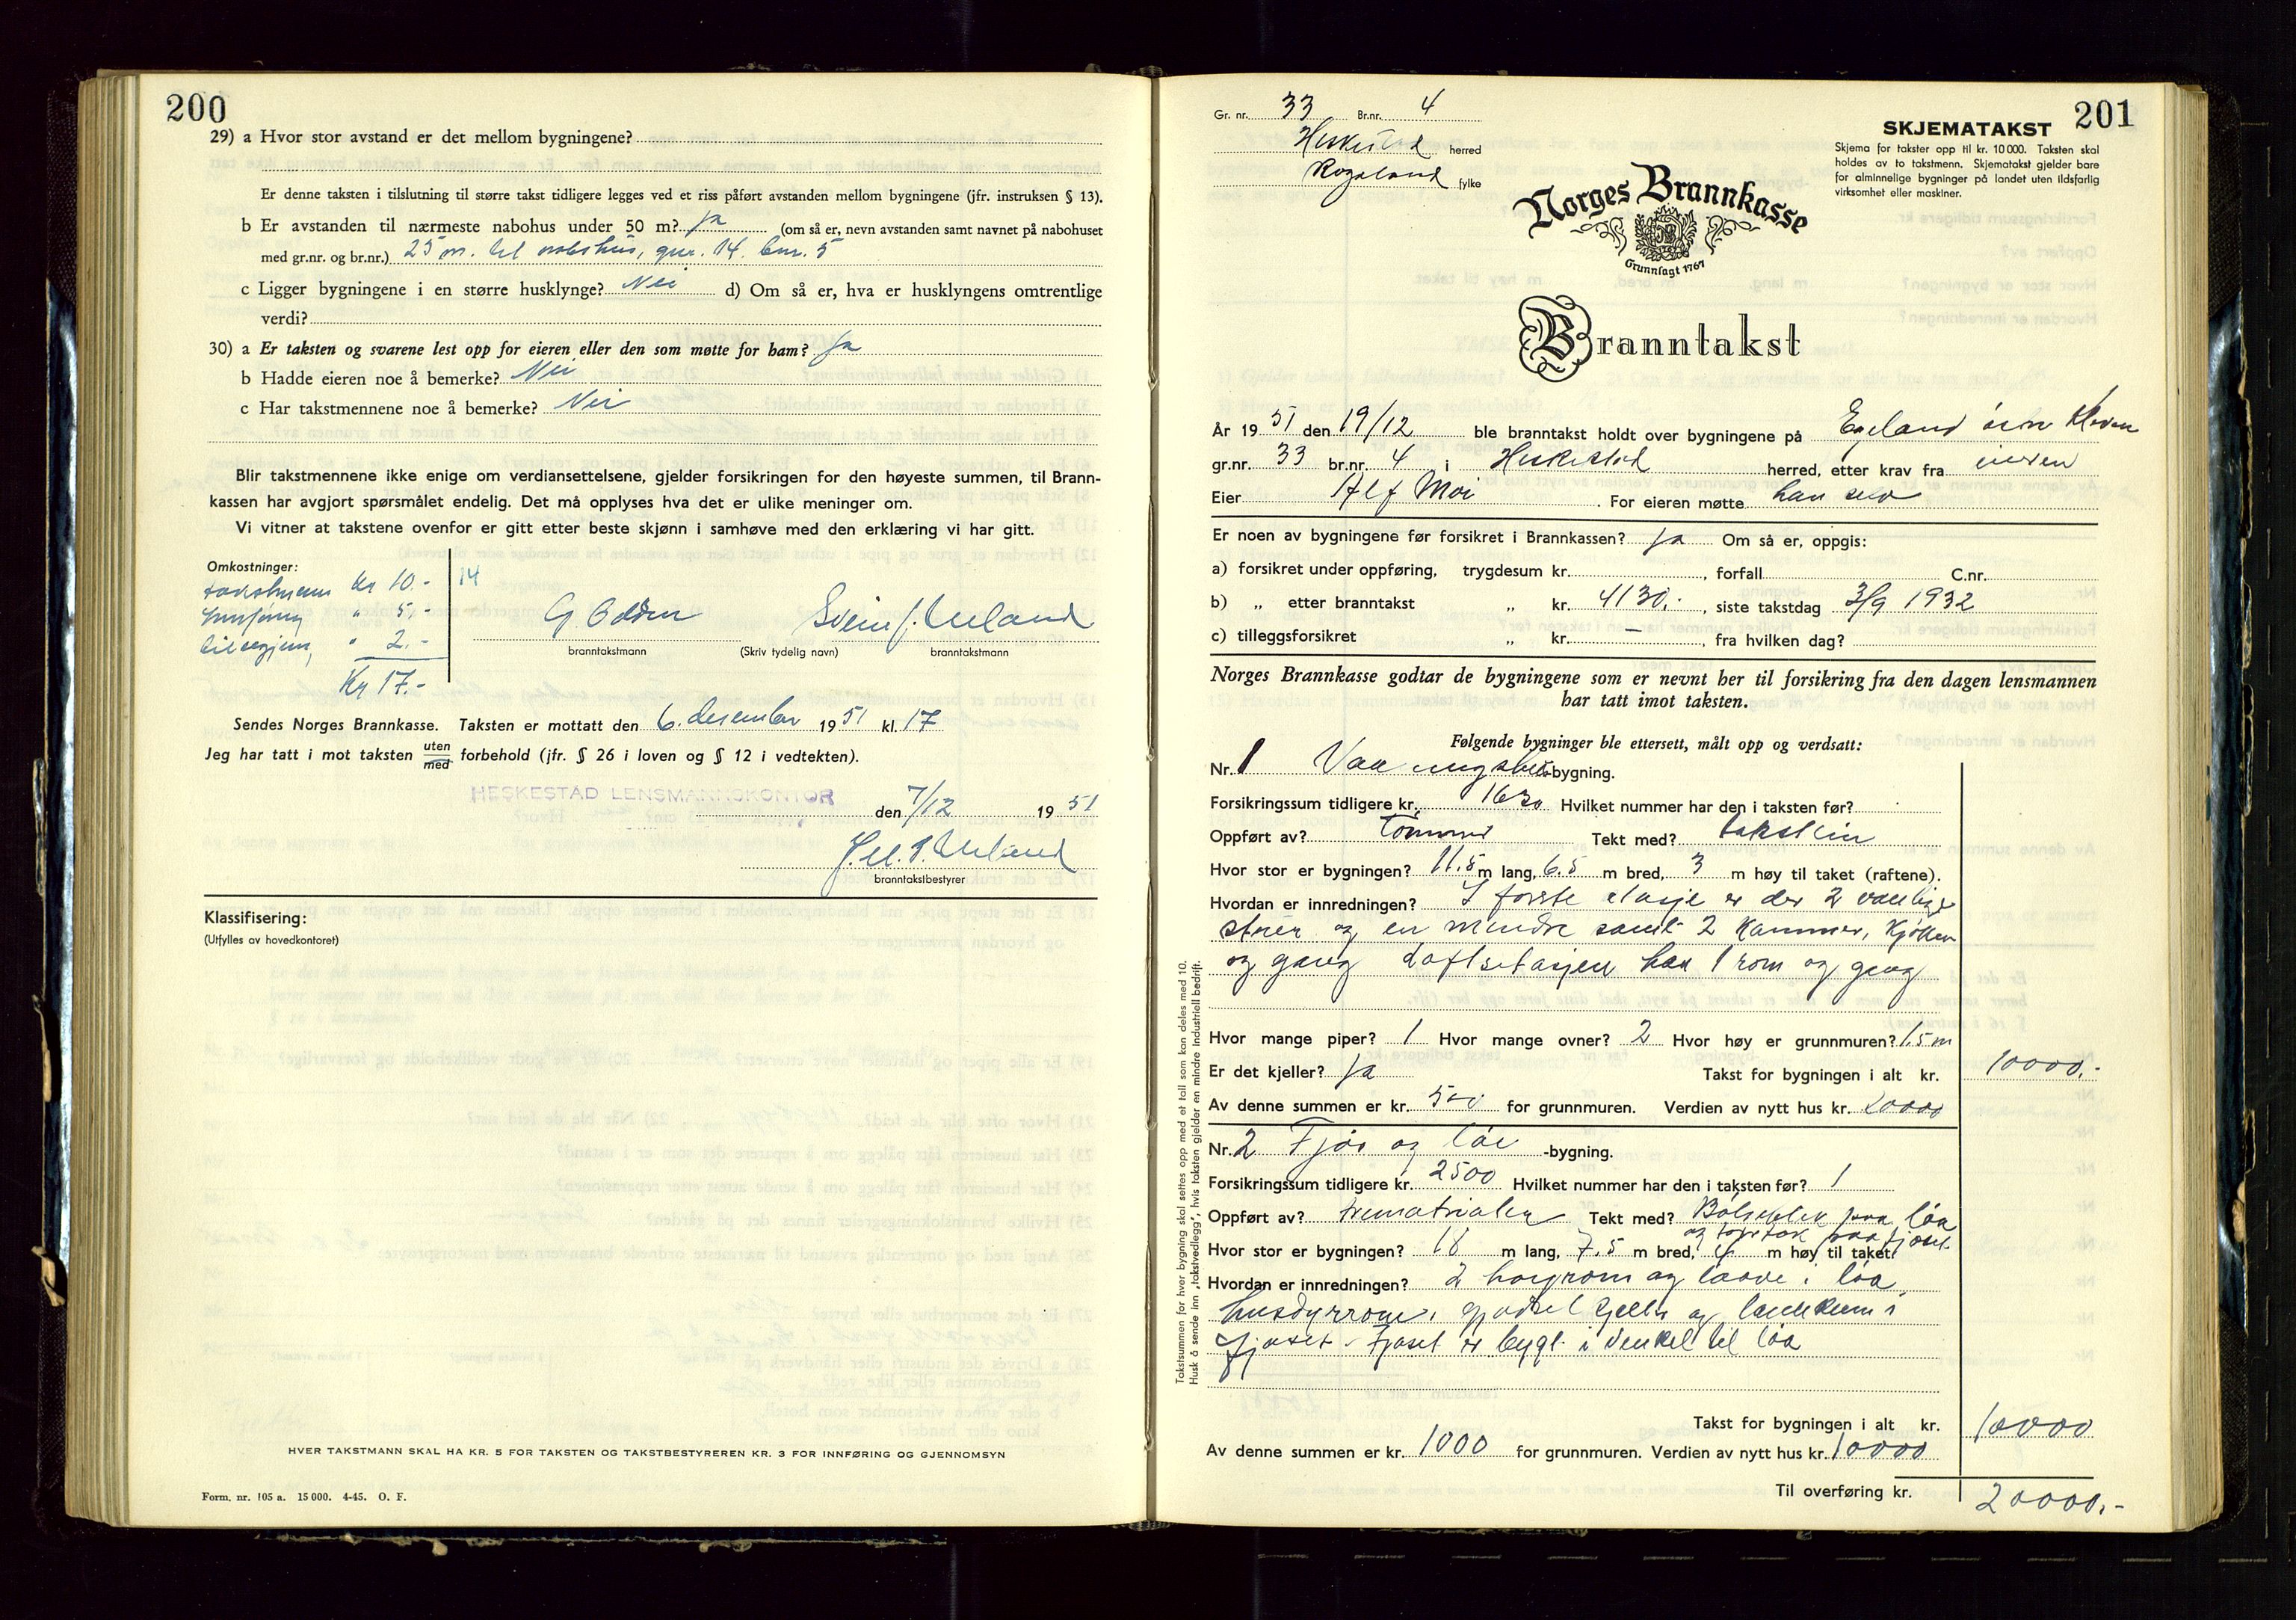 200
29) a Hvor stor avstand er det mellom bygningene?
Er denne taksten i tilslutning til større takst tidligere legges ved et riss påført avstanden mellom bygningene (jfr. instruksen § 13).
b Er avstanden til nærmeste nabohus under 50 m? ja (om så er, nevn avstanden samt navnet på nabohuset
med gr.nr. og br.nr.) 25 m. til gnr. 14. bnr. 5
c Ligger bygningene i en større husklynge? Nei d) Om så er, hva er husklyngens omtrentlige
verdi?
30) a Er taksten og svarene lest opp for eieren eller den som møtte for ham? Ja
b Hadde eieren noe å bemerke? Nei
c Har takstmennene noe å bemerke? Nei
Blir takstmennene ikke enige om verdiansettelsene, gjelder forsikringen for den høyeste summen, til Brann-
kassen har avgjort spørsmålet endelig. Det må opplyses hva det er ulike meninger om.
Vi vitner at takstene ovenfor er gitt etter beste skjønn i samhøve med den erklæring vi har gitt.
Omkostninger:
takstmenn Kr 10.- 14
" 5.-
" 2.-
Kr 17.-
Svein J. Ueland
branntakstmann (Skriv tydelig navn) branntakstmann
Sendes Norges Brannkasse. Taksten er mottatt den 6. desember 1951 kl. 17
Jeg har tatt i mot taksten uten
med forbehold (jfr. § 26 i loven og § 12 i vedtekten).
HESKESTAD LENSMANNSKONTOR den 7/12 1951
Ueland
branntakstbestyrer
Klassifisering:
(Utfylles av hovedkontoret)
HVER TAKSTMANN SKAL HA KR. 5 FOR TAKSTEN OG TAKSTBESTYREREN KR. 3 FOR INNFØRING OG GJENNOMSYN
Form. nr. 105 a. 15 000. 4-45. O. F.
201
Gr. nr. 33 Br.nr. 4
Heskestad herred
Rogaland fylke
SKJEMATAKST
Skjema for takster opp til kr. 10 000. Taksten skal
holdes av to takstmenn. Skjematakst gjelder bare
for alminnelige bygninger på landet uten ildsfarlig
virksomhet eller maskiner.
Norges Brannkasse
Grunnlagt 1767
Branntakst
År 1951 den 19/12 ble branntakst holdt over bygningene på Egeland
gr.nr. 33 br.nr. 4 i Heskestad herred, etter krav fra eieren
Eier Alf Moi. For eieren møtte han selv
Er noen av bygningene før forsikret i Brannkassen? Ja Om så er, oppgis:
a) forsikret under oppføring, trygdesum kr. , forfall C.nr.
b) „ etter branntakst „ kr. 4130.-, siste takstdag 3/9 1932
c) tilleggsforsikret „ kr. –, fra hvilken dag?
Norges Brannkasse godtar de bygningene som er nevnt her til forsikring fra den dagen lensmannen
har tatt imot taksten.
Følgende bygninger ble ettersett, målt opp og verdsatt:
Nr. 1 Vaaningshus-bygning.
Forsikringssum tidligere kr. 1630 Hvilket nummer har den i taksten før?
Oppført av? Tømmer Tekt med? takstein
Hvor stor er bygningen? 11.5 m lang, 6.5 m bred, 3 m høy til taket (raftene).
Hvordan er innredningen? I første etasje er der 2 vanlige
stuer og en mindre samt 2 kammer, kjøkken
og gang Loftsetasjen har 1 rom og gang
Hvor mange piper? 1 Hvor mange ovner? 2 Hvor høy er grunnmuren? 1.5 m
Er det kjeller? Ja Takst for bygningen i alt kr. 10000.-
Av denne summen er kr. 500 for grunnmuren. Verdien av nytt hus kr. 20000
Nr. 2 Fjøs og løe -bygning.
Forsikringssum tidligere kr. 2500 Hvilket nummer har den i taksten før? 1
Oppført av? trematrialer Tekt med? Bølgeblek paa løa
og torvtak paa fjøset
Hvor stor er bygningen? 18 m lang, 7.5 m bred, 4 m høy til taket.
Hvordan er innredningen? 2 høyrom og laave i løa
husdyrrom, gjødselkjeller og landkum i
fjøset. Fjøset er bygt i vinkel til løa
Takst for bygningen i alt kr. 10000
Av denne summen er kr. 1000 for grunnmuren. Verdien av nytt hus kr. 10000
Til overføring kr. 20000.-
Takstsummen for hver bygning skal settes opp med et tall som kan deles med 10.
Husk å sende inn „takstvedlegg", hvis taksten gjelder en mindre industriell bedrift.